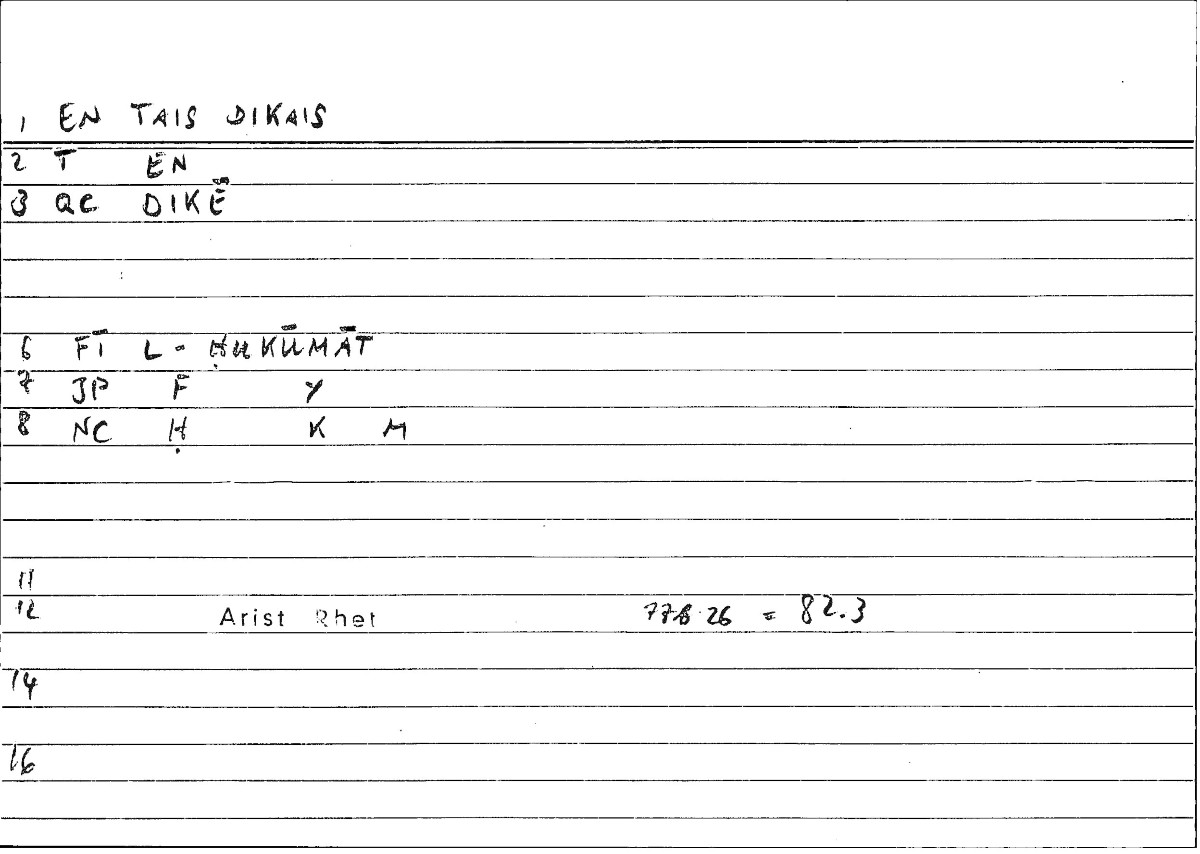 1 EN TAIS DIKAIS
2 T EN
3 QC DIKĒ
6 FĪ L- ḤUKŪMĀT
7 JP F Y
8 NC Ḥ K M
11
12 Arist Rhet 77b 26 = 82.3
14
16